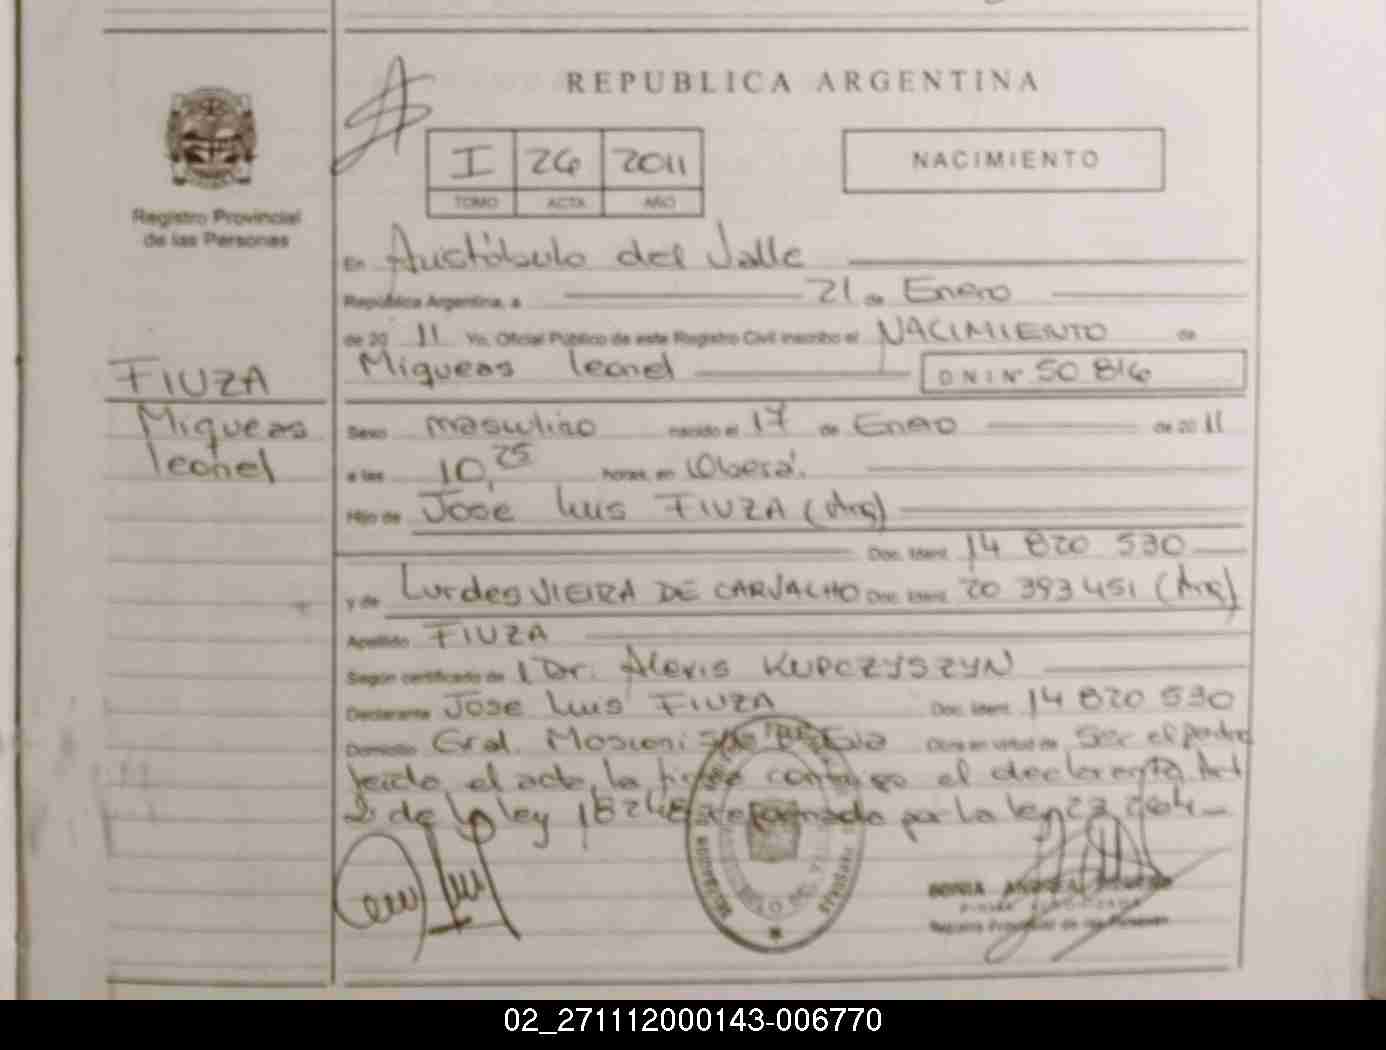 REPUBLICA ARGENTINA
I 26 2011
TOMO ACTA AÑO
NACIMIENTO
Registro Provincial
de las Personas
En Aristóbulo del Valle
República Argentina, a 21 de Enero
de 20 11 Yo, Oficial Público de este Registro Civil inscribo el NACIMIENTO de
Miqueas leonel DNI Nº 50 816
FIUZA
Miqueas
leonel
Sexo masculino nacido el 17 de Enero de 20 11
a las 10,25 horas, en Oberá.
Hijo de José Luis FIUZA (Arg)
Doc. Ident. 14 820 530
y de Lurdes VIEIRA DE CARVALHO Doc. Ident. 20 393 451 (Arg)
Apellido FIUZA
Según certificado de Dr. Alexis KUPCZYSZYN
Declarante José Luis FIUZA Doc. Ident. 14 820 530
Domicilio Gral. Mosconi Obra en virtud de ser el padre
leido el acta, la firma conmigo el declarante Art
2 de la ley 18248 reformada por la ley 23 264
Registro Provincial de las Personas
02_271112000143-006770